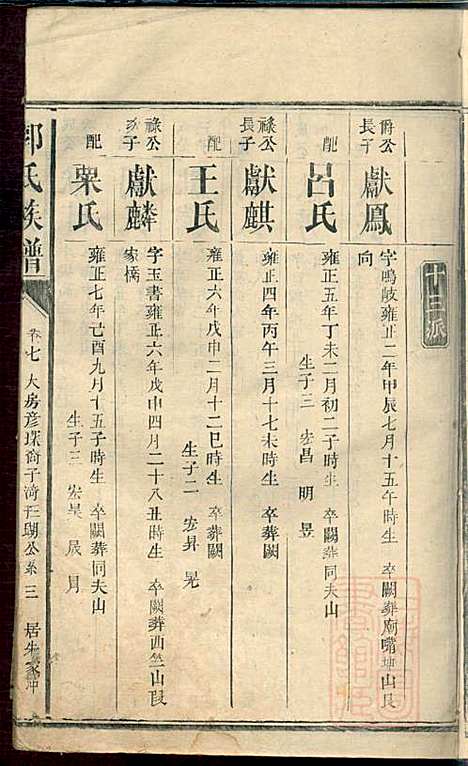 十三派
爵公長子
獻鳳
字鳴岐雍正二年甲辰七月十五午時生 卒闕葬廟嘴坤山艮
向
配
呂氏
雍正五年丁未二月初二子時生 卒闕葬同夫山
生子三 宏昌 明 昱
祿公長子
獻麒
雍正四年丙午三月十七未時生 卒葬闕
配
王氏
雍正六年戊申二月十二巳時生 卒葬闕
生子二 宏昇 晃
祿公次子
獻麟
字玉書雍正六年戊申四月二十八丑時生 卒闕葬西竺山段
家橋
配
栗氏
雍正七年己酉九月十五子時生 卒闕葬同夫山
生子三 宏杲 晟
氏族譜
卷七 大房彥琛裔子漪子瑚公系 三 居朱家冲